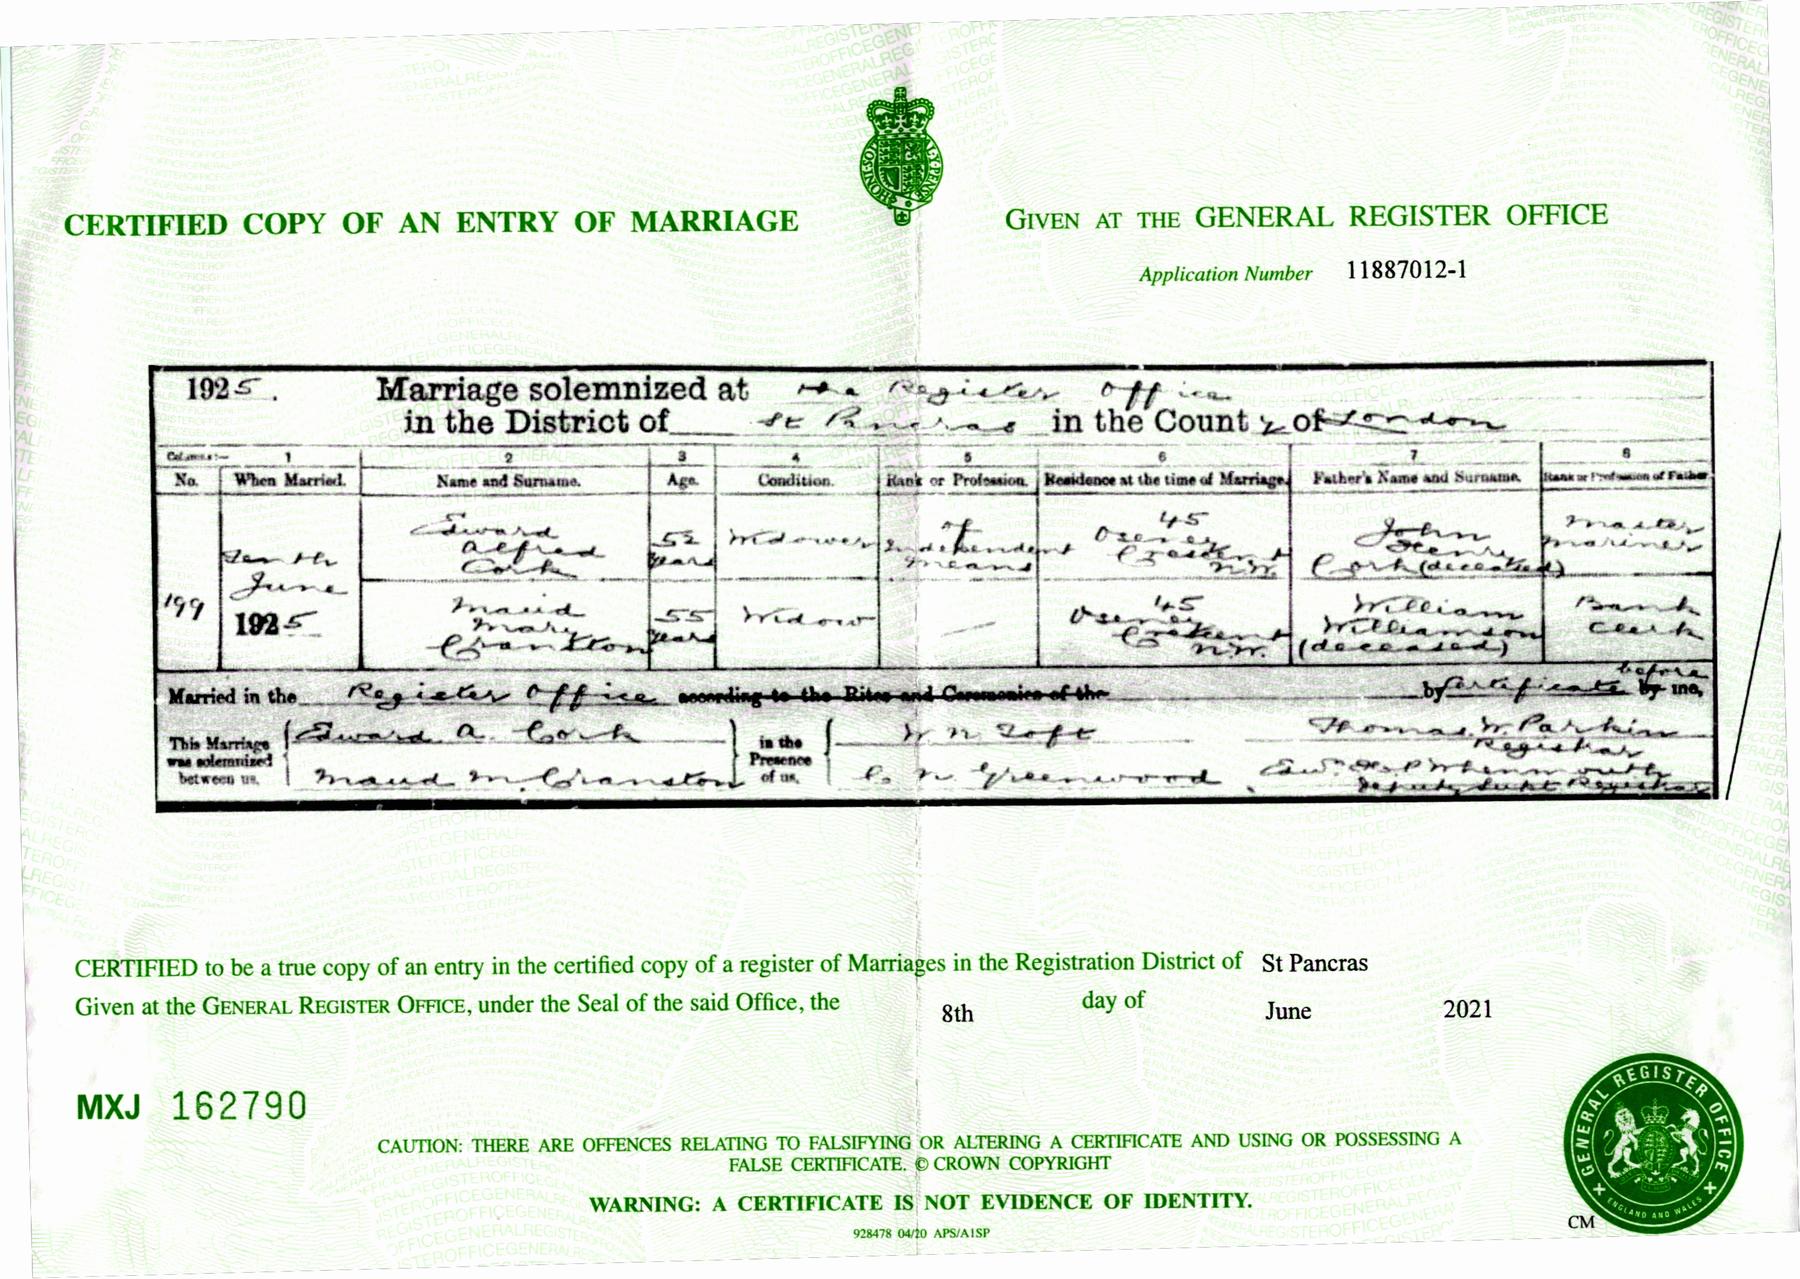 CERTIFIED COPY OF AN ENTRY OF MARRIAGE
GIVEN AT THE GENERAL REGISTER OFFICE
Application Number 11887012-1
1925. Marriage solemnized at the Register Office
in the District of St Pancras in the County of London
Columns:— 1 2 3 4 5 6 7 8
No. When Married. Name and Surname. Age. Condition. Rank or Profession. Residence at the time of Marriage. Father's Name and Surname. Rank or Profession of Father
199
Tenth
June
1925
Edward
Alfred
Cork
52
years
Widower
of
Independent
means
45
Oseney
Crescent
N.W.
John
Henry
Cork (deceased)
Master
Mariner
Maud
Mary
Cranston
55
years
Widow
—
45
Oseney
Crescent
N.W.
William
Williamson
(deceased)
Bank
Clerk
Married in the Register Office according to the Rites and Ceremonies of the by certificate by before me,
This Marriage
was solemnized
between us,
Edward A. Cork
Maud M. Cranston
in the
Presence
of us,
W. N. Toft
C. N. Greenwood
Thomas W. Parkin
Registrar
Deputy Supt Registrar
CERTIFIED to be a true copy of an entry in the certified copy of a register of Marriages in the Registration District of St Pancras
Given at the GENERAL REGISTER OFFICE, under the Seal of the said Office, the 8th day of June 2021
MXJ 162790
CAUTION: THERE ARE OFFENCES RELATING TO FALSIFYING OR ALTERING A CERTIFICATE AND USING OR POSSESSING A
FALSE CERTIFICATE. © CROWN COPYRIGHT
WARNING: A CERTIFICATE IS NOT EVIDENCE OF IDENTITY.
928478 04/20 APS/A1SP
GENERAL REGISTER OFFICE
ENGLAND AND WALES
CM